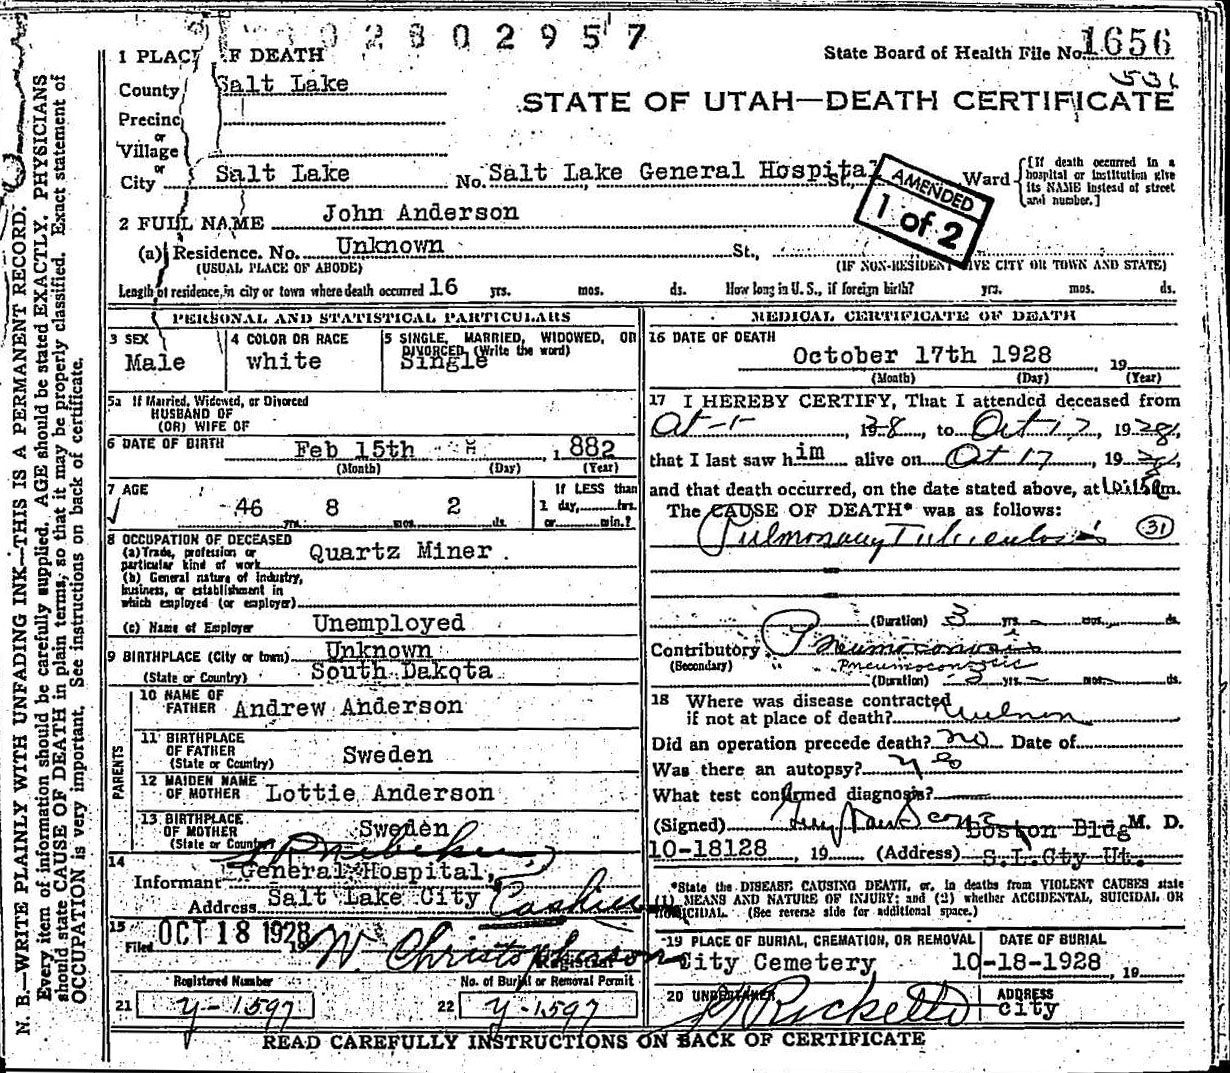 2302957
State Board of Health File No. 1656
531
1 PLACE OF DEATH
County Salt Lake
STATE OF UTAH—DEATH CERTIFICATE
Precinct
or
Village
or
City Salt Lake No. Salt Lake General Hospital St., Ward
[If death occurred in a
hospital or institution give
its NAME instead of street
and number.]
AMENDED
1 of 2
2 FULL NAME John Anderson
(a) Residence. No. Unknown St.,
(USUAL PLACE OF ABODE) (IF NON-RESIDENT GIVE CITY OR TOWN AND STATE)
Length of residence in city or town where death occurred 16 yrs. mos. ds. How long in U. S., if foreign birth? yrs. mos. ds.
PERSONAL AND STATISTICAL PARTICULARS
3 SEX
Male
4 COLOR OR RACE
white
5 SINGLE, MARRIED, WIDOWED, OR
DIVORCED (Write the word)
Single
5a If Married, Widowed, or Divorced
HUSBAND OF
(OR) WIFE OF
6 DATE OF BIRTH Feb 15th 1882
(Month) (Day) (Year)
7 AGE
46 yrs. 8 mos. 2 ds.
If LESS than
1 day, hrs.
or min.?
8 OCCUPATION OF DECEASED
(a) Trade, profession or
particular kind of work Quartz Miner.
(b) General nature of industry,
business, or establishment in
which employed (or employer)
(c) Name of Employer Unemployed
9 BIRTHPLACE (City or town) Unknown
(State or Country) South Dakota
PARENTS
10 NAME OF
FATHER Andrew Anderson
11 BIRTHPLACE
OF FATHER
(State or Country) Sweden
12 MAIDEN NAME
OF MOTHER Lottie Anderson
13 BIRTHPLACE
OF MOTHER
(State or Country) Sweden
14
Informant General Hospital,
Address Salt Lake City Cashier
15
Filed OCT 18 1928 19 W. Christopherson
Registrar
Registered Number
21 y-1597
No. of Burial or Removal Permit
22 y-1597
MEDICAL CERTIFICATE OF DEATH
16 DATE OF DEATH
October 17th 1928, 19
(Month) (Day) (Year)
17 I HEREBY CERTIFY, That I attended deceased from
, to Oct 17, 1928,
that I last saw him alive on Oct 17, 1928,
and that death occurred, on the date stated above, at m.
The CAUSE OF DEATH* was as follows:
Pulmonary Tuberculosis 31
(Duration) 3 yrs. mos. ds.
Contributory Pneumoconosis
(Secondary) Pneumoconosis
(Duration) 3 yrs. mos. ds.
18 Where was disease contracted
if not at place of death?
Did an operation precede death? no Date of
Was there an autopsy? yes
What test confirmed diagnosis?
(Signed) Boston Bldg M. D.
10-18128, 19 (Address) S.L.Cty Ut.
*State the DISEASE CAUSING DEATH, or, in deaths from VIOLENT CAUSES state
(1) MEANS AND NATURE OF INJURY; and (2) whether ACCIDENTAL, SUICIDAL OR
HOMICIDAL. (See reverse side for additional space.)
19 PLACE OF BURIAL, CREMATION, OR REMOVAL
City Cemetery
DATE OF BURIAL
10-18-1928, 19
20 UNDERTAKER
Ricketts
ADDRESS
city
READ CAREFULLY INSTRUCTIONS ON BACK OF CERTIFICATE
N. B.—WRITE PLAINLY WITH UNFADING INK—THIS IS A PERMANENT RECORD.
Every item of information should be carefully supplied. AGE should be stated EXACTLY. PHYSICIANS
should state CAUSE OF DEATH in plain terms, so that it may be properly classified. Exact statement of
OCCUPATION is very important. See instructions on back of certificate.